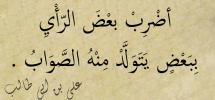 أضْرِبْ بعْضَ الرَّأْيِ
بِبَعْضٍ يَتَوَلَّدْ مِنْهُ الصَّوَابُ .
علي بن أبي طالب